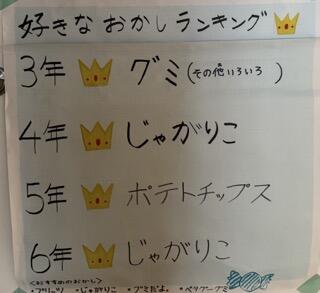 好きなおかしランキング
3年 グミ(その他いろいろ)
4年 じゃがりこ
5年 ポテトチップス
6年 じゃがりこ
<おすすめのおかし>
・プリッツ ・じゃがりこ ・グミだよ。